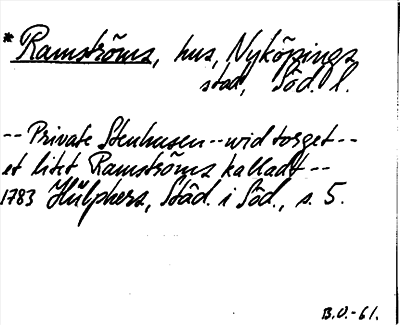 * Ramströms, hus, Nyköpings
stad, Söd. l.
-- Private Stenhusen -- wid torget --
et litet Ramströms kalladt --
1783 Hülphers, Städ. i Söd., s. 5.
B.O.-61.